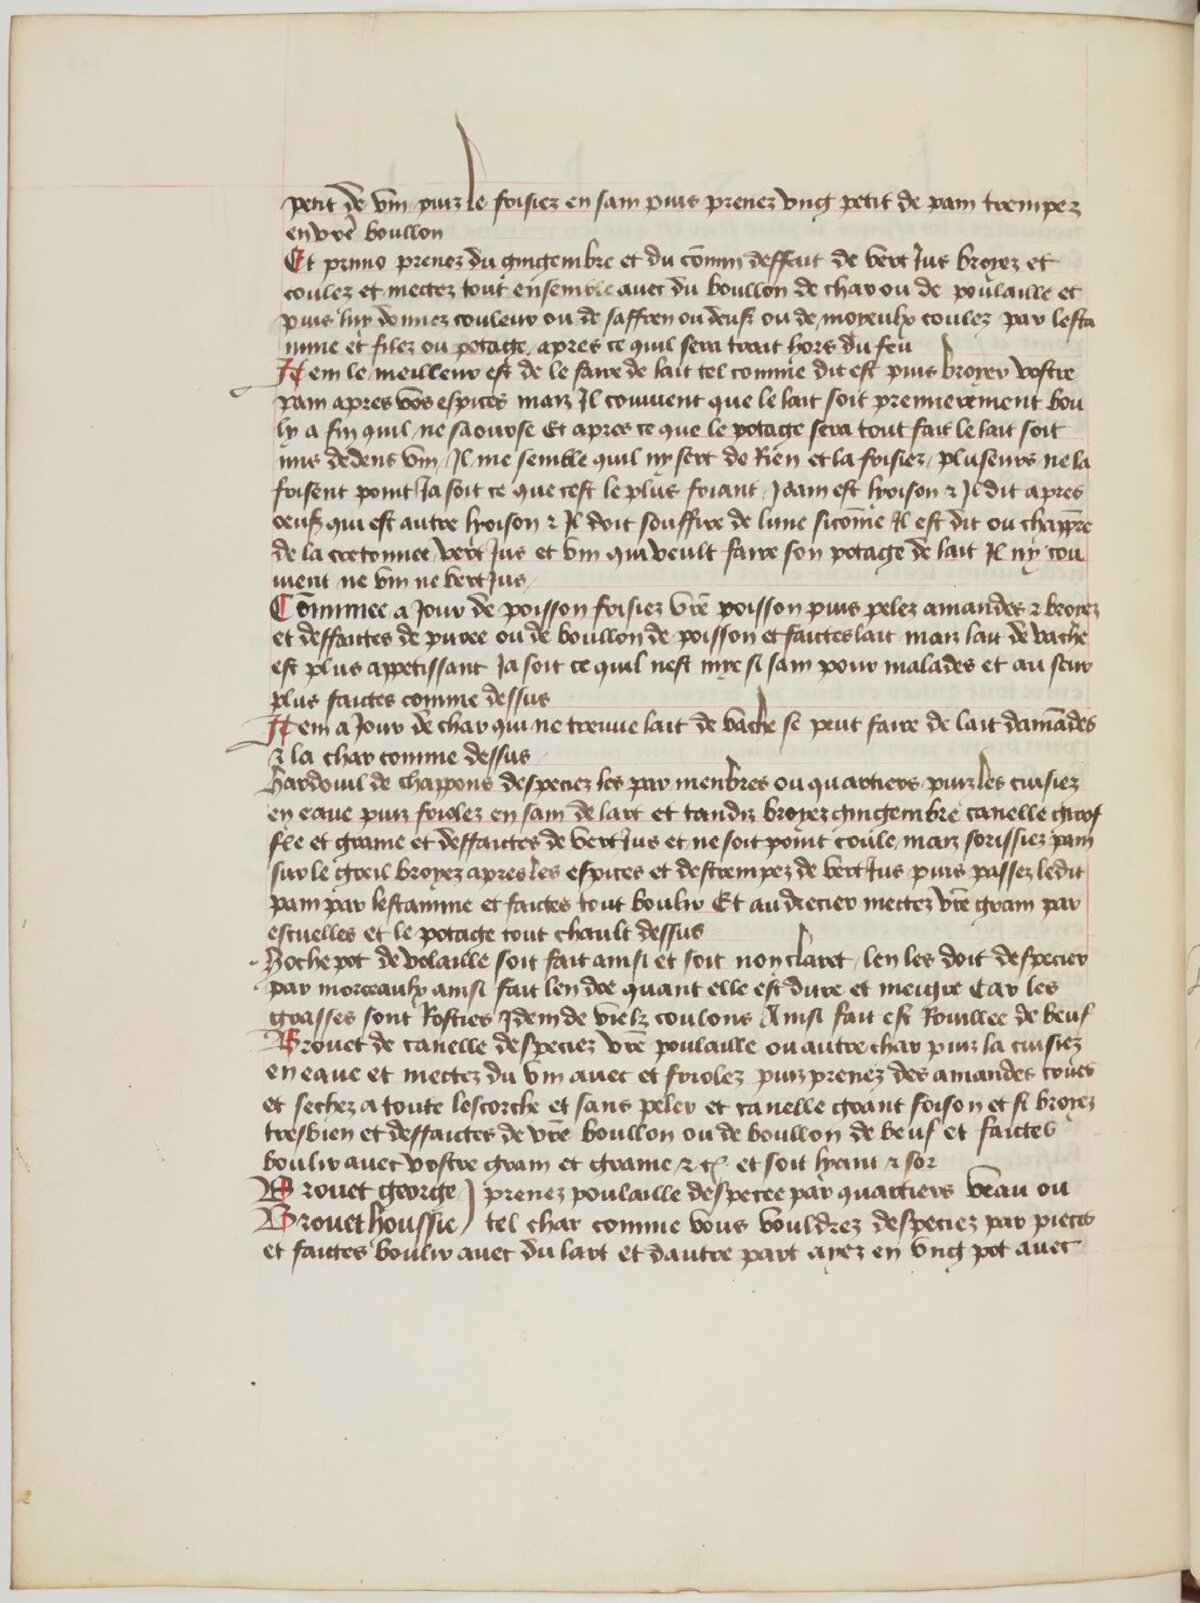 petit de vin puiz le frisiez en sain puis prenez ung petit de pain trempez
en vrẽ boullon
Et primo prenez du gingembre et du cõmin deffait de vert Jus broyez et
coulez et mectez tout ensemble avec du boullon de char ou de poulaille et
puis luy donnez couleur ou de saffren ou deufz ou de moyeulx coulez par lesta
mine et filez ou potage apres ce quil sera trait hors du feu
Item le meilleur est de le faire de lait tel comme dit est puis broyer vostre
pain apres voz espices maiz Il convient que le lait soit premierement bou
ly a fin quil ne saourse Et apres ce que le potage sera tout fait le lait soit
mis dedens vin Il me semble quil ny sert de Rien et la frisiez pluseurs ne la
frisent point Ja soit ce que cest le plus friant Jdam est lyoison ⁊ Jl dit apres
oeufz qui est autre lyoison ⁊ Jl doit souffire de lune sicõme Il est dit ou chappr̃e
de la cretonnee vert Jus et vin qui veult faire son potage de lait Il ny cou
vient ne vin ne vert Jus
Cõminee a Jour de poisson frisiez vrẽ poisson puis pelez amandes ⁊ broyez
et deffaictes de puree ou de boullon de poisson et faictes lait maiz lait de vache
est plus appetissant Ja soit ce quil nest mye si sain pour malades et au seur
plus faictes comme dessus
Item a Jour de char qui ne treuve lait de vache se peut faire de lait damãdes
⁊ la char comme dessus
Hardouil de chappons despeciez les par menbres ou quartiers puiz les cuisiez
en eaue puiz friolez en sain de lart et tandiz broyez gingembre canelle girof
fle et graine et deffaictes de vert Jus et ne soit point coule maiz forissiez pain
sur le greil broyez apres les espices et destrempez de vert Jus puis passez ledit
pain par lestamine et faictes tout boulir Et au drecier mectez vrẽ grain par
escuelles et le potage tout chault dessus
Hochepot de volaille soit fait ainsi et soit non claret len les doit despecier
par morceaulx ainsi fait len doe quant elle est dure et meigre Car les
grasses sont Rosties Jdem de vielz coulons Ainsi fait est Rouillee de beuf
Brouet de canelle despeciez vrẽ poulaille ou autre char puiz la cuisiez
en eaue et mectez du vin avec et friolez puiz prenez des amandes crues
et sechez a toute lescorche et sans peler et canelle grant foison et si broyez
tresbien et deffaictes de vrẽ boullon ou de boullon de beuf et faictes
boulir avec vostre grain et graine ⁊ c̃ et soit lyant ⁊ sor
Brouet george prenez poulaille despecee par quartiers veau ou
Brouet houssie tel char comme vous vouldrez despeciez par pieces
et faictes boulir avec du lart et dautre part ayez en ung pot avec